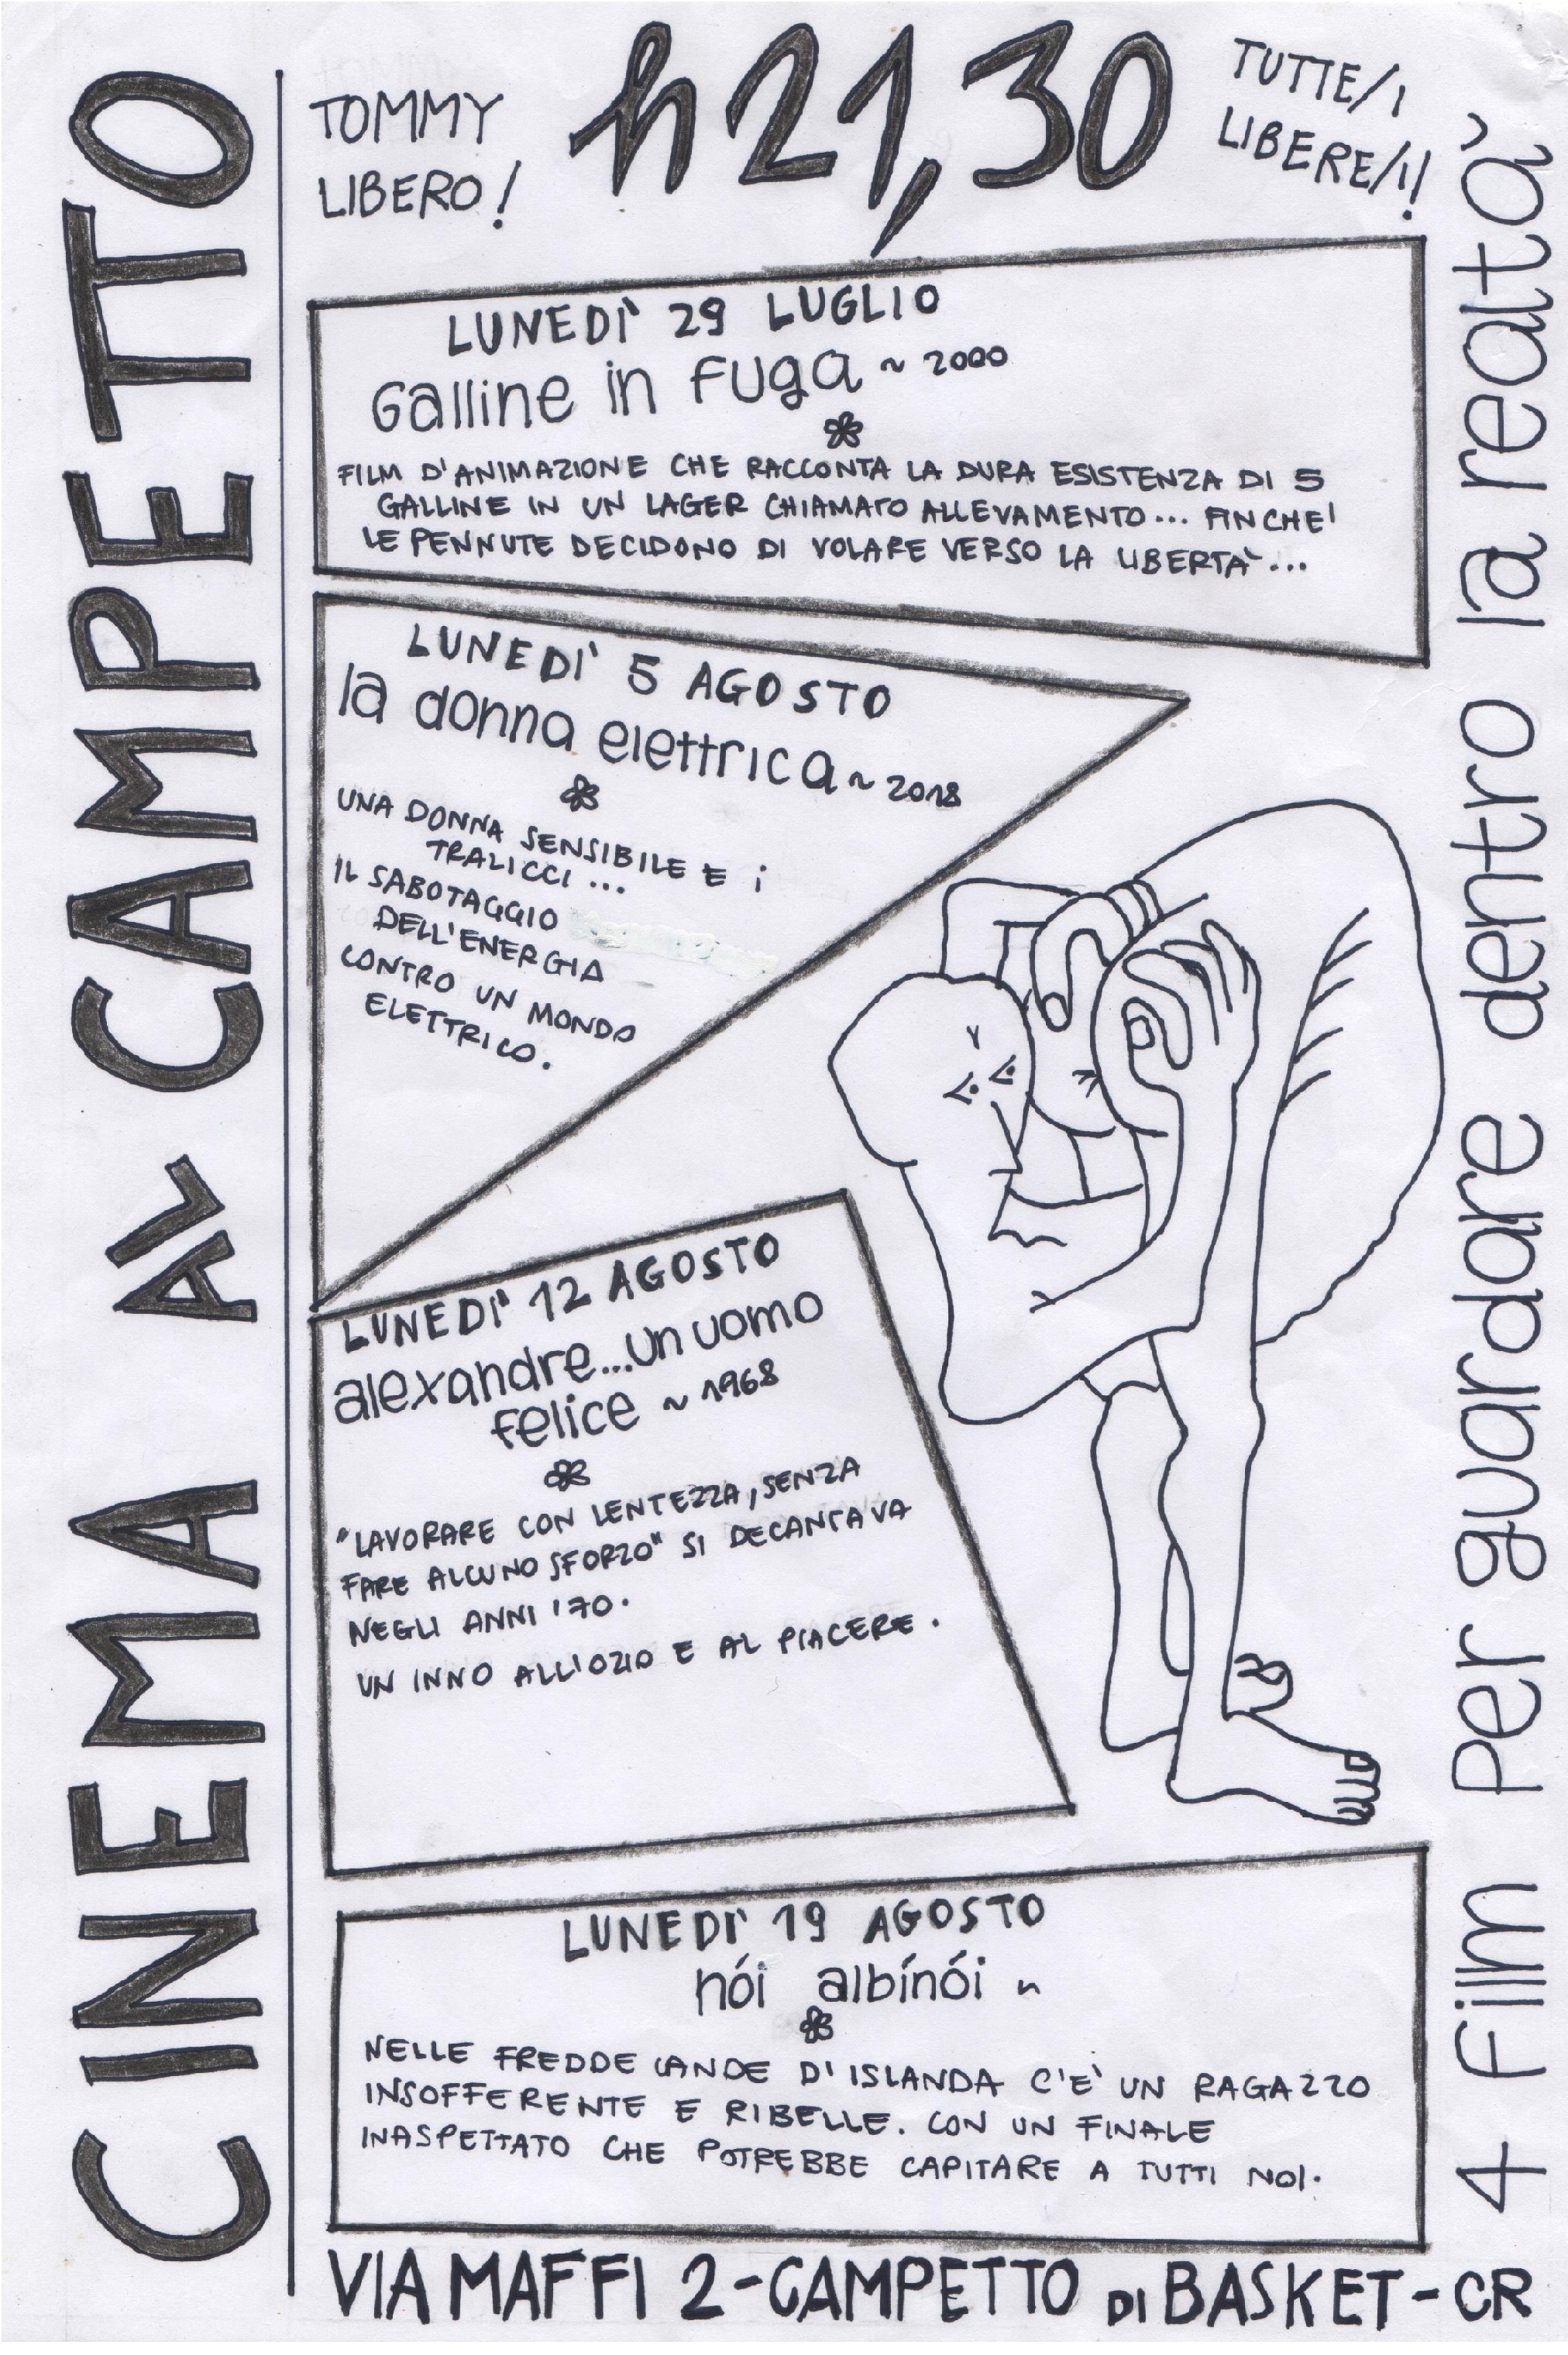 CINEMA AL CAMPETTO
TOMMY
LIBERO!
h 21,30
TUTTE/I
LIBERE/I!
LUNEDÌ 29 LUGLIO
Galline in fuga ~ 2000
FILM D'ANIMAZIONE CHE RACCONTA LA DURA ESISTENZA DI 5
GALLINE IN UN LAGER CHIAMATO ALLEVAMENTO... FINCHE'
LE PENNUTE DECIDONO DI VOLARE VERSO LA LIBERTÀ...
LUNEDÌ 5 AGOSTO
la donna elettrica ~ 2018
UNA DONNA SENSIBILE E i
TRALICCI...
IL SABOTAGGIO
DELL'ENERGIA
CONTRO UN MONDO
ELETTRICO.
LUNEDÌ 12 AGOSTO
alexandre...un uomo
felice ~ 1968
"LAVORARE CON LENTEZZA, SENZA
FARE ALCUNO SFORZO" SI DECANTAVA
NEGLI ANNI '70.
UN INNO ALL'OZIO E AL PIACERE.
LUNEDÌ 19 AGOSTO
nói albínói ~
NELLE FREDDE LANDE D'ISLANDA C'E' UN RAGAZZO
INSOFFERENTE E RIBELLE. CON UN FINALE
INASPETTATO CHE POTREBBE CAPITARE A TUTTI NOI.
4 film per guardare dentro la realtà
VIA MAFFI 2 - CAMPETTO DI BASKET - CR